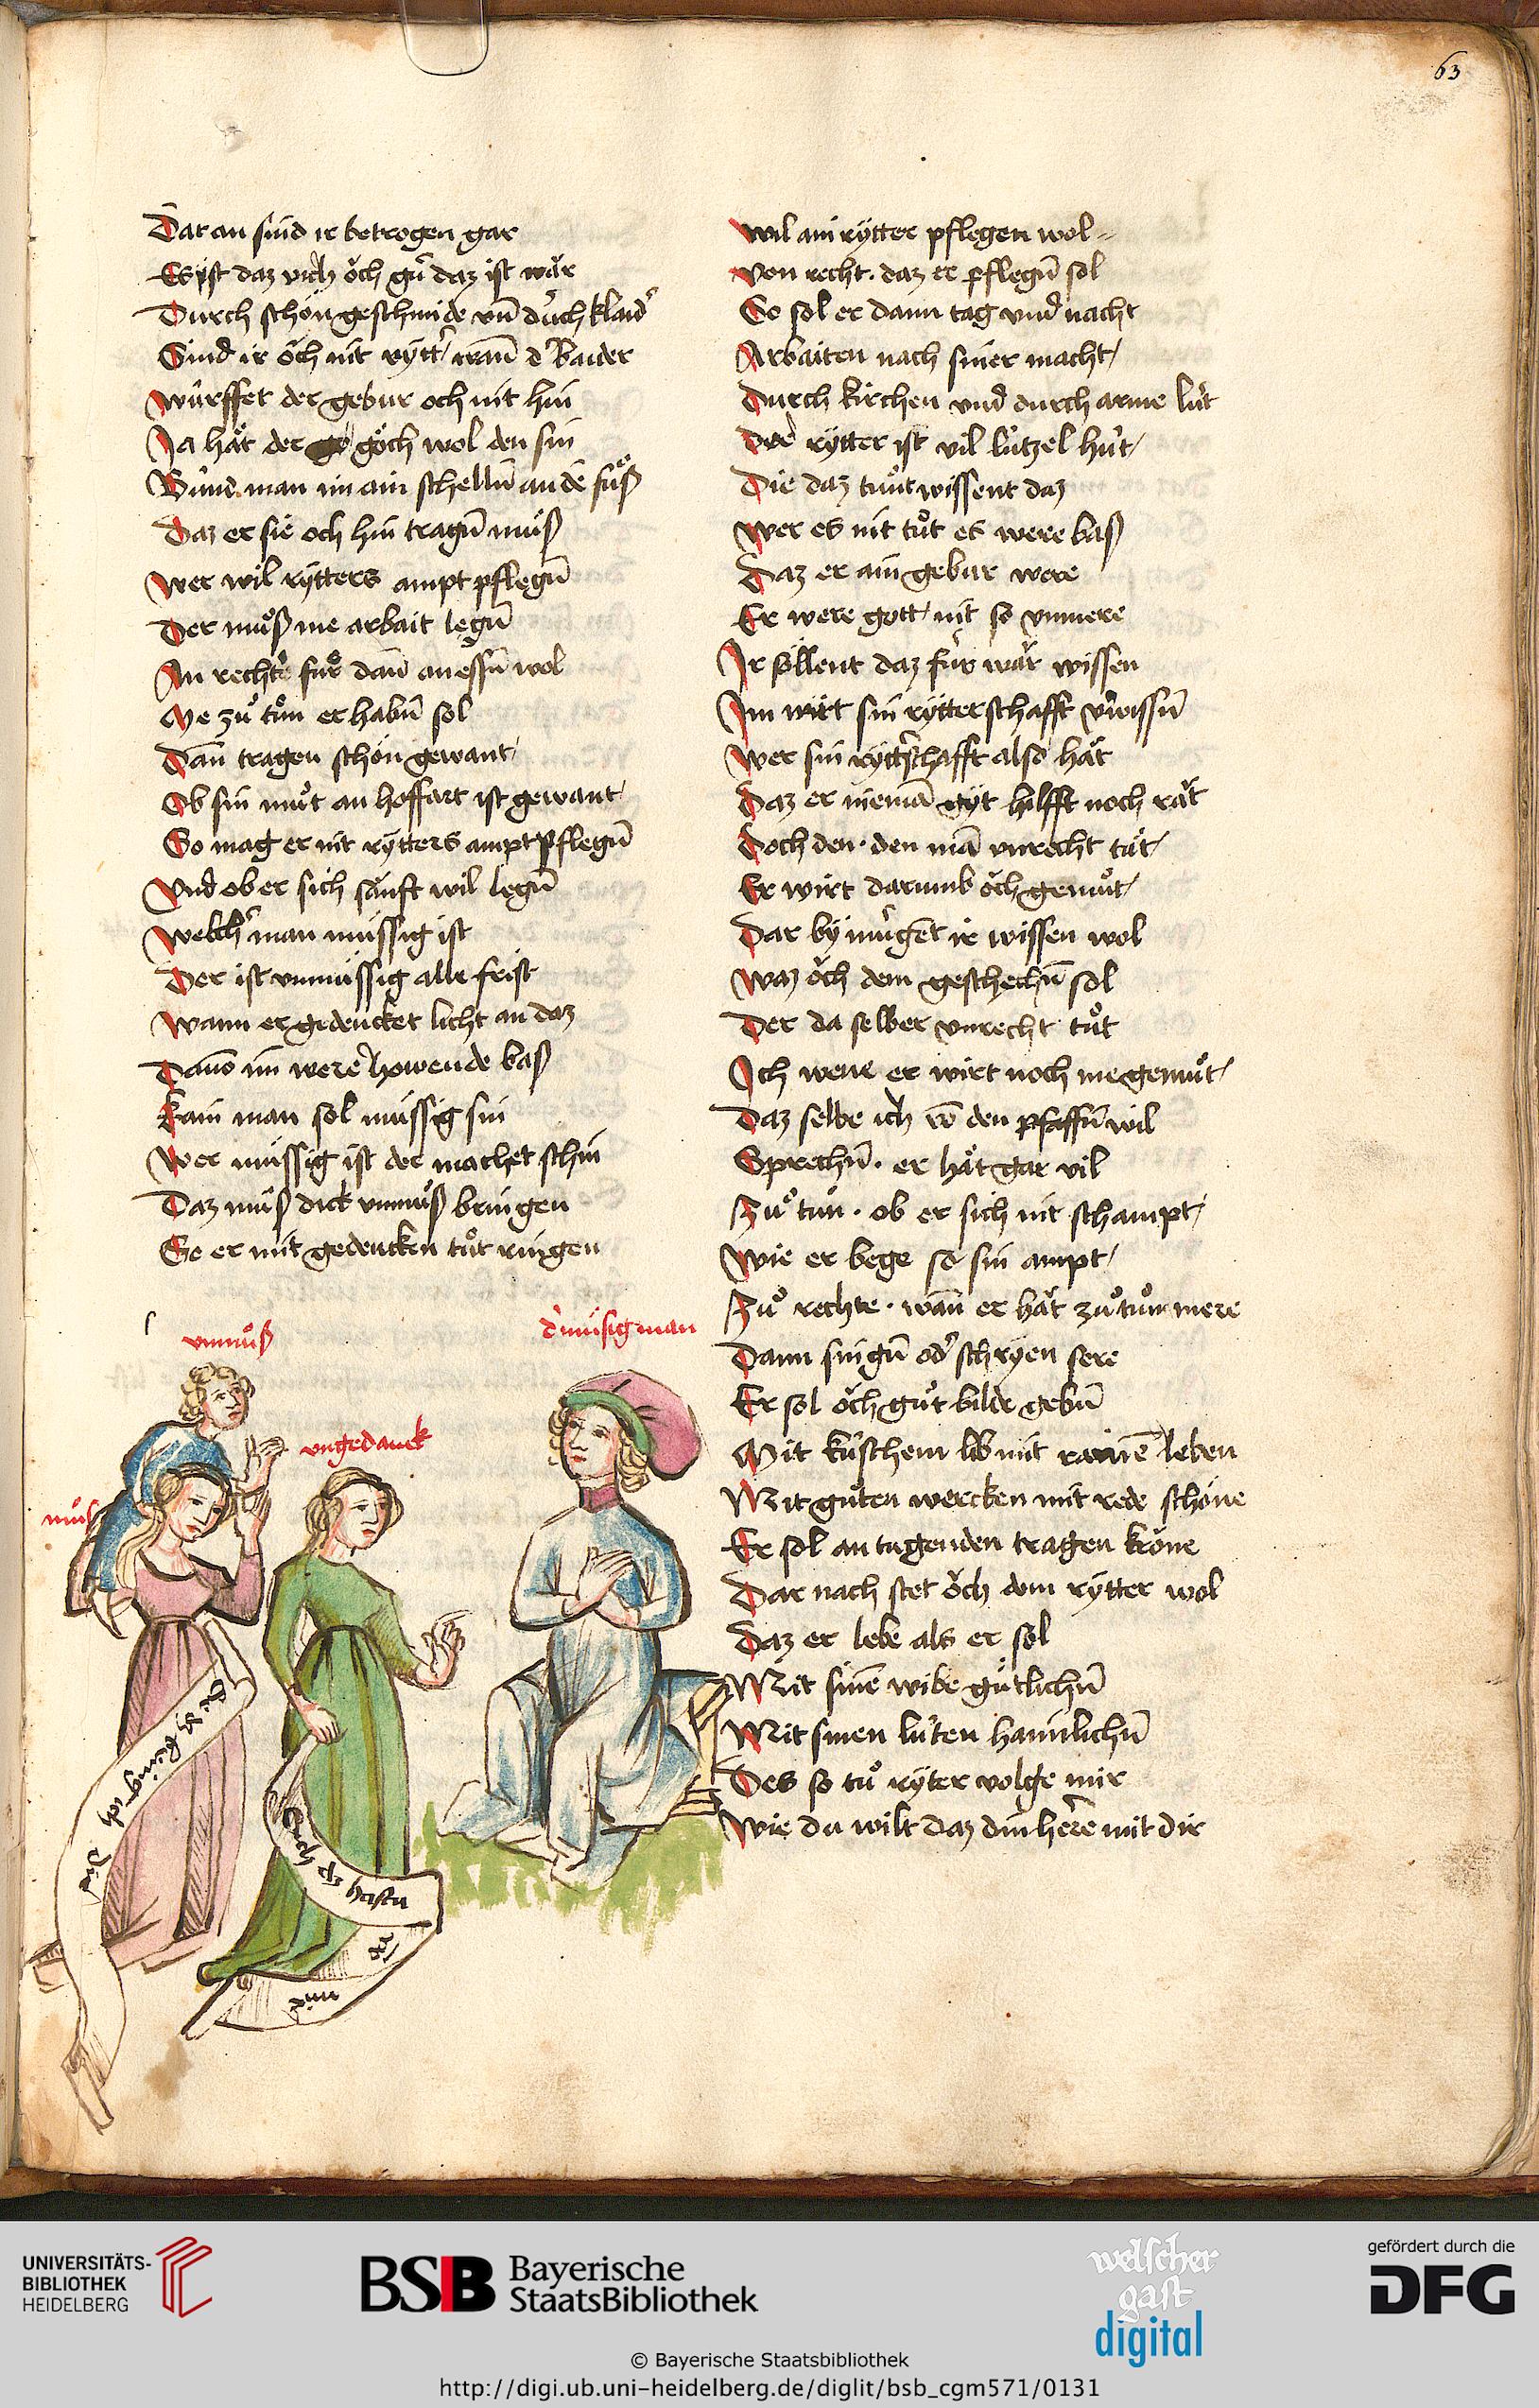 63
Dar an sind ir betrogen gar
Es ist daz vich öch gůt daz ist wär
Durch schön geschmide vn̄ durch klaid'
Sind ir öch nit rytt' wann̄ d' baider
würffet der gebur och nit hin
Ja hät der göch wol den sin
Bund man im ain schellū an dē fůß
Daz er sie och hin tragn̄ muͦß
Wer wil rytters ampt pflegn̄
Der muͦß me arbait legn̄
An recht' fuͦr dan̄ an essn̄ wol
Me zuͦ tuͦn er habn̄ sol
Dan̄ tragen schön gewant
Ob sin muͦt an hoffart ist gewant
So mag er nit rytters ampt pflegn̄
Vnd ob er sich sänft wil legn̄
Welch' man müssig ist
Der ist vnmüssig alle frist
Wann er gedencket licht an daz
Dauō im were howende baß
Kain man sol müssig sin
Wer müssig ist der machet schin
Daz muͦß dick vnmuͦß bringen
So er mit gedencken tuͦt ringen
vnmuͦß
d' müsig man
vngedanck
muͦß
ich
hastu
mit
wil ain rytter pflegen wol
Von recht · daz er pflegn̄ sol
So sol er dann tag vnd nacht
Arbaiten nach siner macht
Durch kirchen vnd durch arme lüt
Der rytter ist vil lützel hüt
Die daz tuͦnt wissent daz
Wer es nit tuͦt es were baß
Daz er ain gebur were
Er were gott nit so vnmere
Ir söllent daz für wär wissen
Im wirt sin rytterschafft v'wissn̄
Wer sin rytt'schafft also hät
Daz er niemā gyt hilfft noch rät
Doch den · den mā vnrecht tuͦt
Er wirt darumb öch gemuͦt
Dar by mügēt ir wissen wol
Waz öch dem geschechn̄ sol
Der da selber vnrecht tuͦt
Ich wene er wirt noch me gemuͦt
Daz selbe ich vō den pfaffn̄ wil
Sprechn̄ · er hät gar vil
Zuͦ tun · ob er sich nit schampt
Wie er bege so sin ampt
Zuͦ rechte · wan̄ er hät zuͦ tuͦn mere
Dann singn̄ od' schryen sere
Er sol öch guͦt bilde gebn̄
Mit küschem lib mit rainē leben
Mit guͦten wercken mit rede schöne
Er sol an tugenden tragen kröne
Dar nach stet öch dem rytter wol
Daz er lebe als er sol
Mit sinē wibe guͤtlichn̄
Mit sinen lüten haimlichn̄
Des so tuͦ ryter volge mir
Wie du wilt daz din here mit dir
UNIVERSITÄTS-
BIBLIOTHEK
HEIDELBERG
BSB Bayerische
StaatsBibliothek
welscher
gast
digital
gefördert durch die
DFG
© Bayerische Staatsbibliothek
http://digi.ub.uni-heidelberg.de/diglit/bsb_cgm571/0131